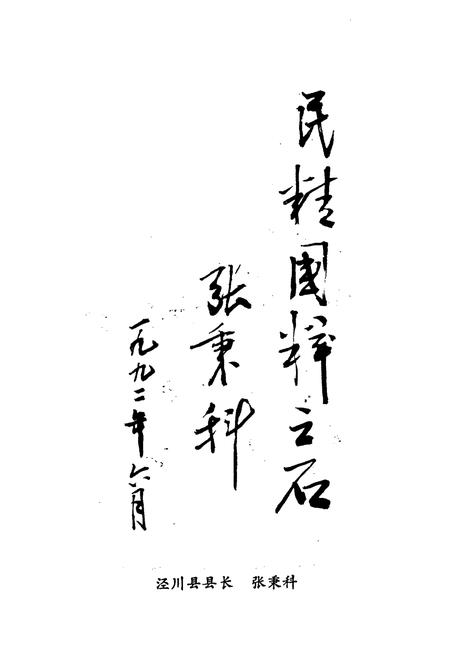 民精國粹之石
张秉科
一九九二年六月
泾川县县长　张秉科